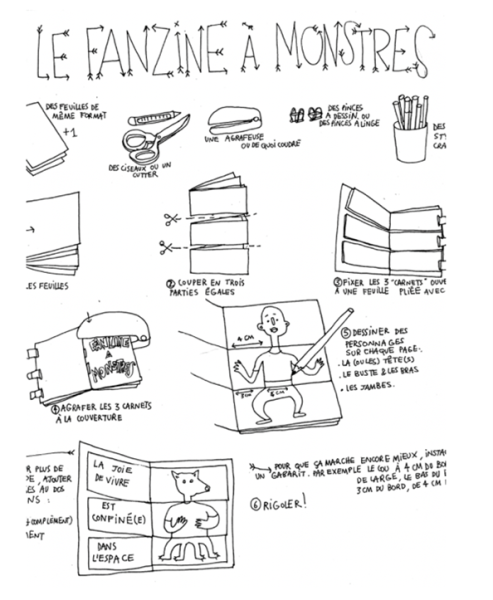 LE FANZINE À MONSTRES
DES FEUILLES DE
MÊME FORMAT
+1
DES CISEAUX OU UN
CUTTER
UNE AGRAFEUSE
OU DE QUOI COUDRE
DES PINCES
À DESSIN, OU
DES PINCES À LINGE
DES
STY
CRA
ES FEUILLES
② COUPER EN TROIS
PARTIES ÉGALES
③ FIXER LES 3 "CARNETS" OUVE
À UNE FEUILLE PLIÉE AVEC
FANZINE
À
MONSTRES
④ AGRAFER LES 3 CARNETS
À LA COUVERTURE
4 CM
3 CM
6 CM
⑤ DESSINER DES
PERSONNAGES
SUR CHAQUE PAGE.
. LA (OU LES) TÊTE(S)
. LE BUSTE & LES BRAS
. LES JAMBES.
R PLUS DE
, AJOUTER
ES AU DOS
NS :
COMPLÉMENT)
MENT
LA JOIE
DE VIVRE
EST
CONFINÉ(E)
DANS
L'ESPACE
POUR QUE ÇA MARCHE ENCORE MIEUX, INSTA
UN GABARIT. PAR EXEMPLE LE COU À 4 CM DU BO
DE LARGE, LE BAS DU
3 CM DU BORD, DE 4 CM
⑥ RIGOLER!